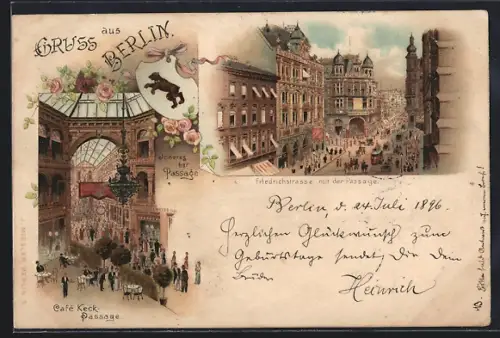 GRUSS aus
BERLIN.
Inneres der
Passage
Café Keck
Passage.
Friedrichstrasse mit der Passage.
Berlin, d. 24 Juli 1896.
Herzlichen Glückwunsch zum
Geburtstage sendet Dir Dein
Bruder
Heinrich